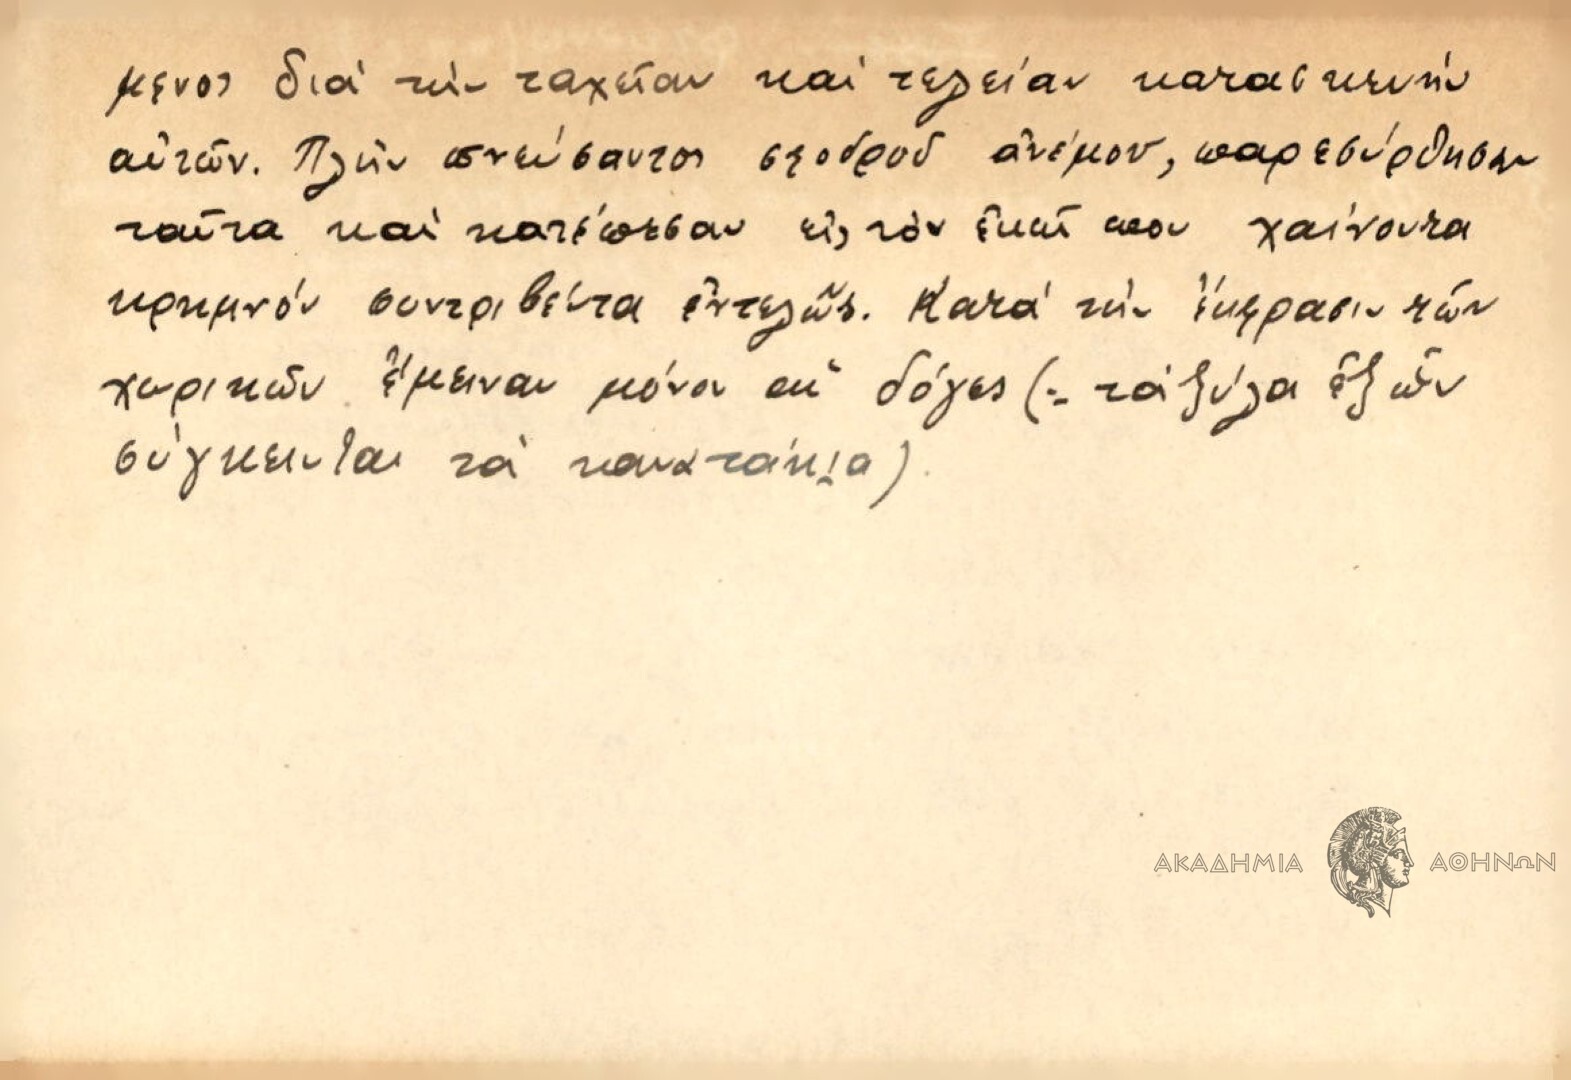 μενος διὰ τὴν ταχεῖαν καὶ τελείαν κατασκευὴν
αὐτῶν. Πλὴν πνεύσαντος σφοδροῦ ἀνέμου, παρεσύρθησαν
ταῦτα καὶ κατέπεσαν εἰς τὸν ἐκεῖ που χαίνοντα
κρημνόν συντριβέντα ἐντελῶς. Κατὰ τὴν ἔκφρασιν τῶν
χωρικῶν ἔμειναν μόνον οἱ δόγες (= τὰ ξύλα ἐξ ὧν
σύγκεινται τὰ
ΑΚΑΔΗΜΙΑ ΑΘΗΝΩΝ